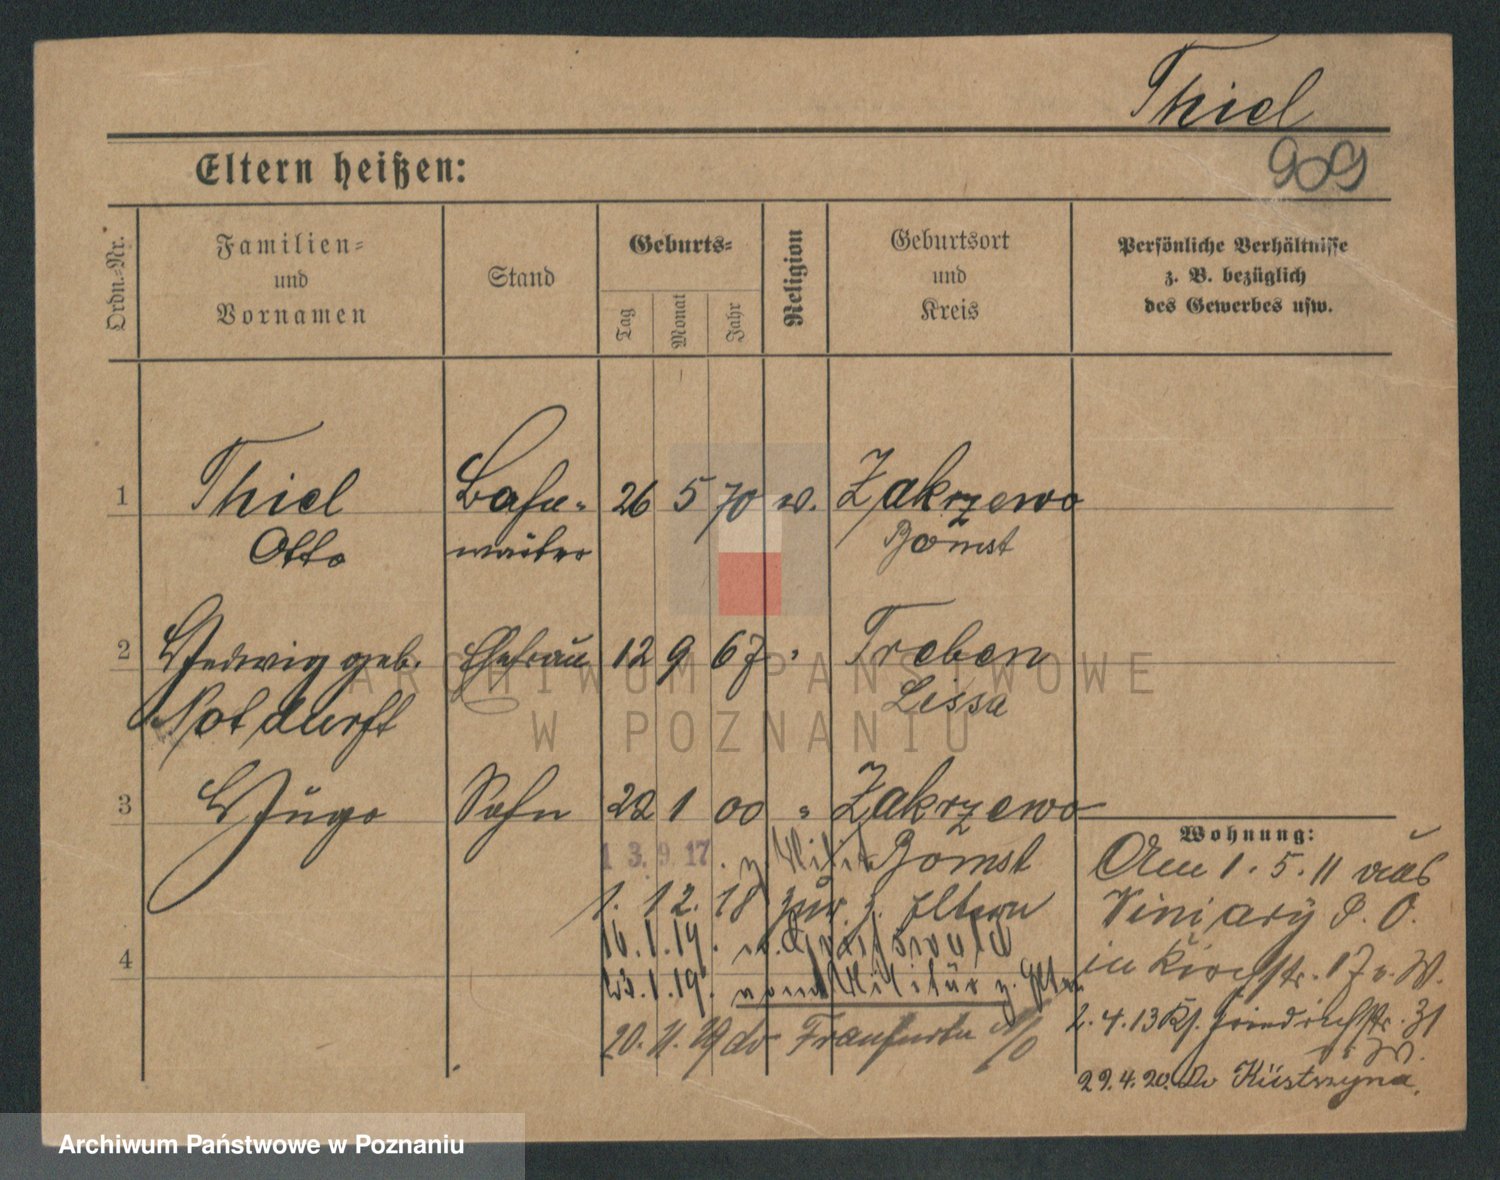 Thiel
909
Eltern heißen:
Ordn.-Nr.
Familien-
und
Vornamen
Stand
Geburts-
Tag
Monat
Jahr
Religion
Geburtsort
und
Kreis
Persönliche Verhältnisse
z. B. bezüglich
des Gewerbes usw.
1 Thiel Bahn- 26 5 70 ev. Zakrzewo
Otto wärter Bomst
2 Hedwig geb. Ehefrau 12 9 67 " Treben
Notdurft Lissa
3 Hugo Sohn 22 1 00 " Zakrzewo
Bomst
13. 9. 17. z. Militär
1. 12. 18 zur. z. Eltern
16. 1. 19. n. Greifswald
23. 1. 19. vom Militär z. Eltern
20. 11. 19 do Frankfurtu a/O
4
Wohnung:
Am 1. 5. 11 aus
Winiary P. O.
in Kirchstr. 17 b. W.
2. 4. 13 Ks. Friedrichstr. 31
b. W.
29. 4. 20. do Küstrzyna.
ARCHIWUM PAŃSTWOWE
W POZNANIU
Archiwum Państwowe w Poznaniu